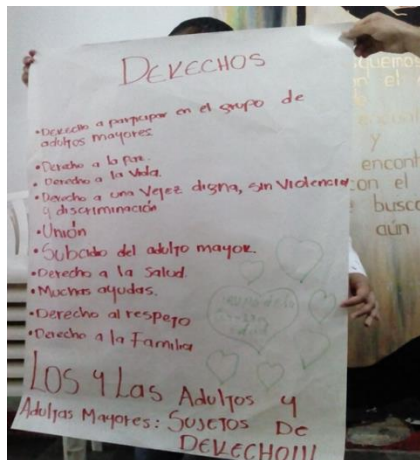 DERECHOS
•Derecho a participar en el grupo de
adultos mayores.
•Derecho a la Paz.
•Derecho a la Vida.
•Derecho a una Vejez digna, sin Violencia
y discriminación
•Unión
•Subcidio del adulto mayor.
•Derecho a la Salud.
•Muchas ayudas.
•Derecho al respeto
•Derecho a la Familia
LOS y Las Adultos y
Adultas Mayores: Sujetos De
DERECHO!!!
el
y
encont
con el
busca
aún